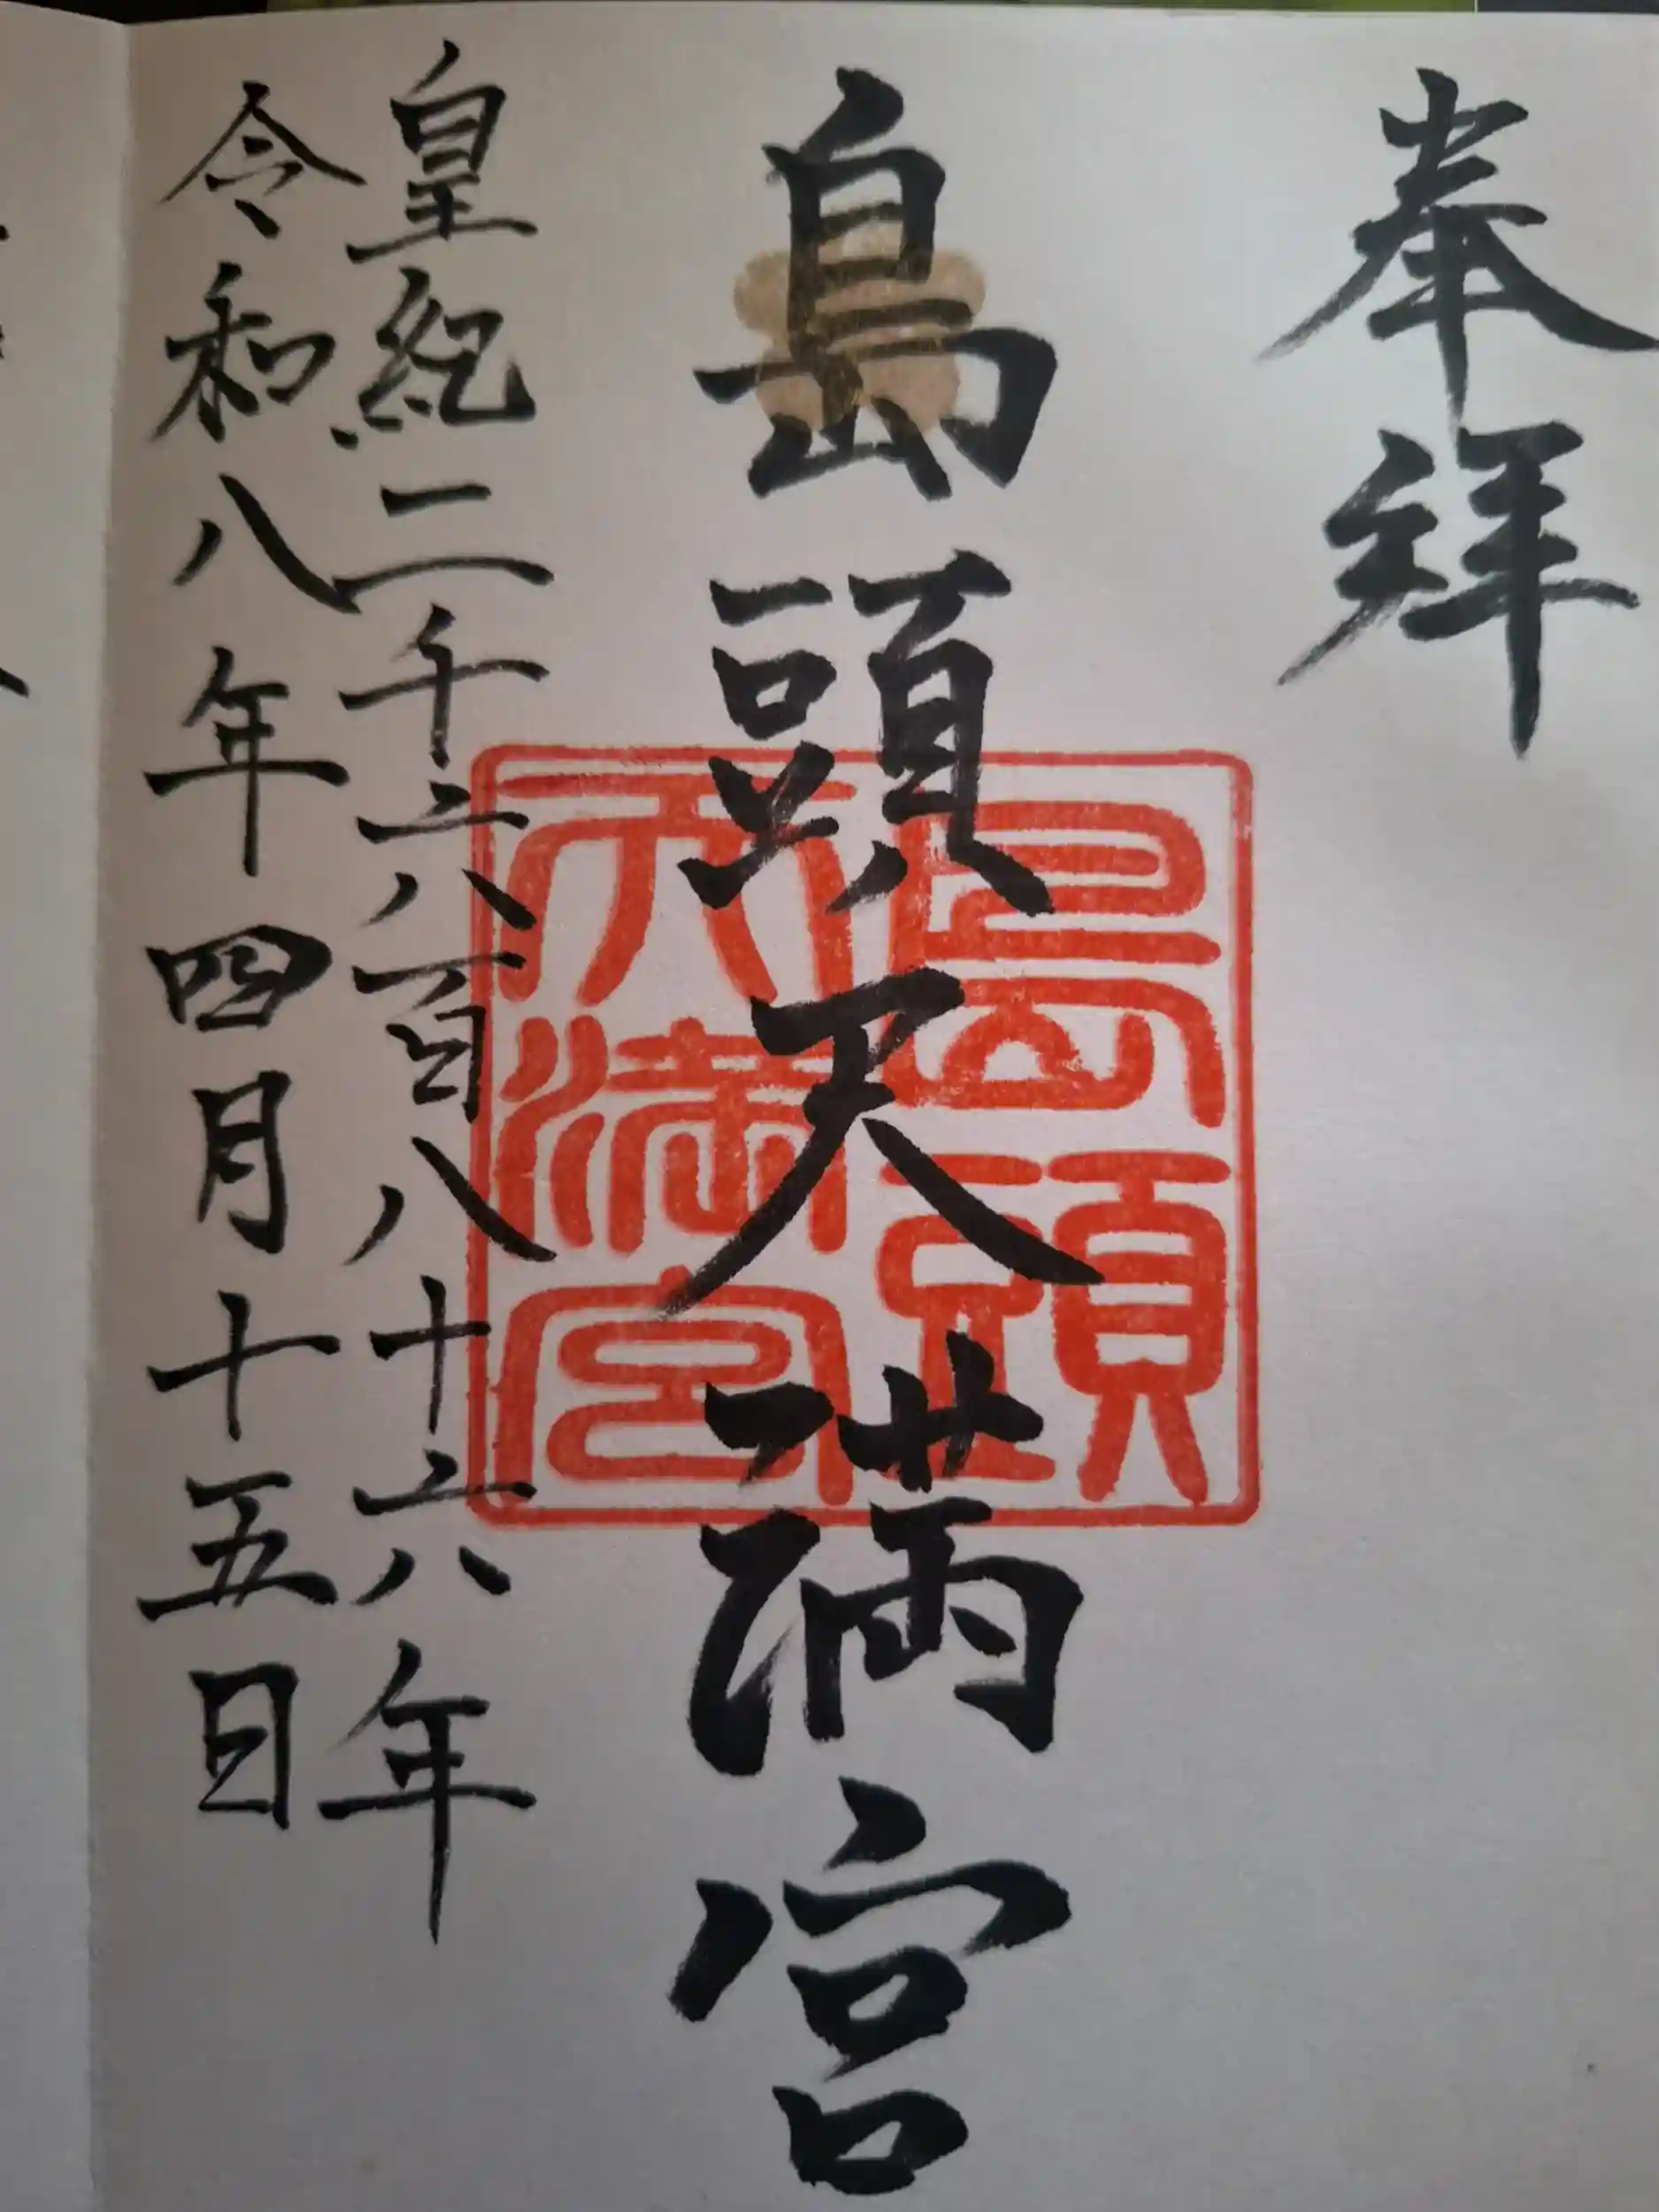 奉拜
島頭天満宮
島頭
天満宮
皇紀二千六百八十六年
令和八年四月十五日